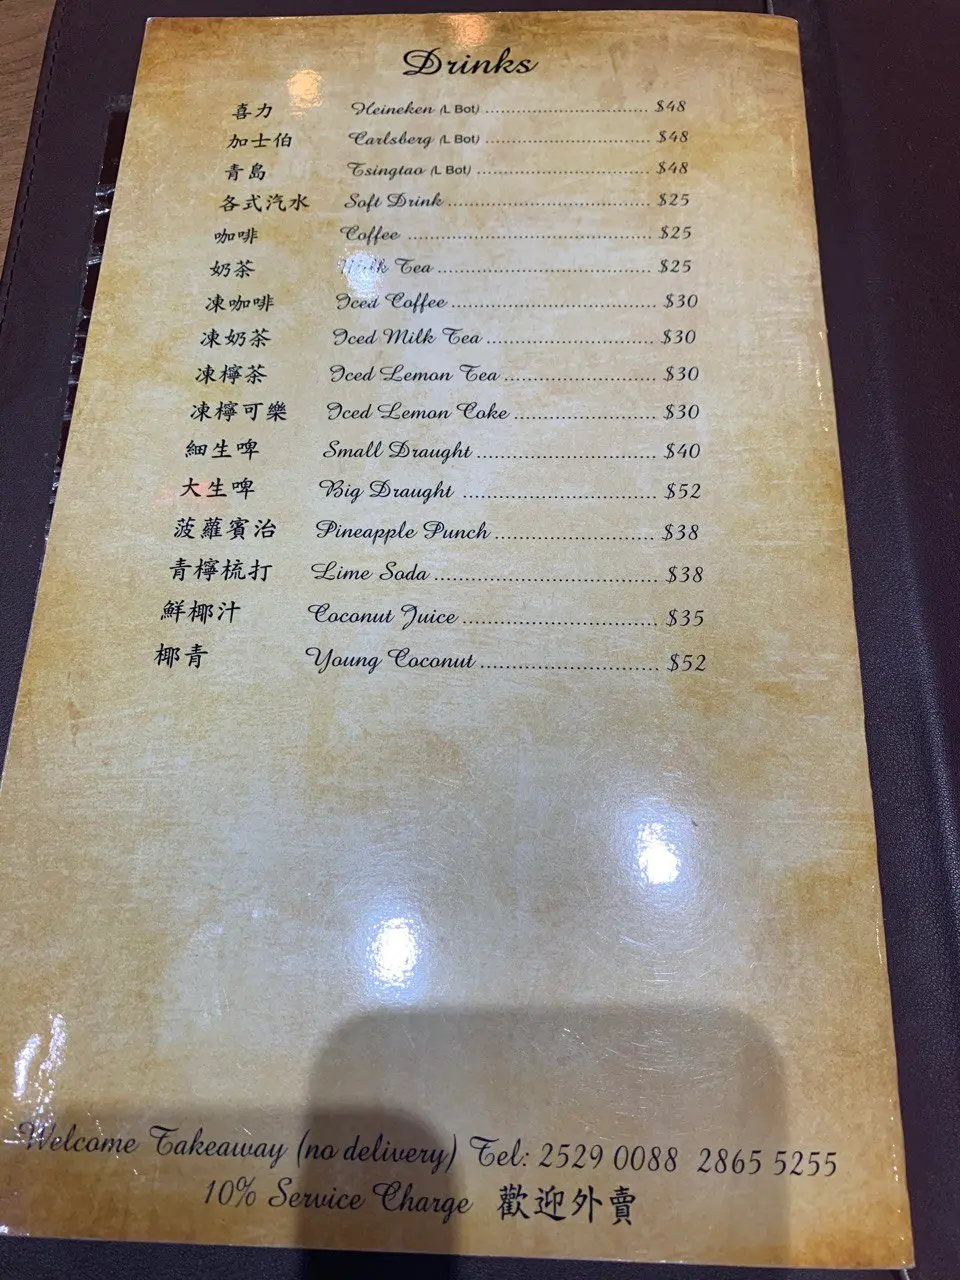 Drinks
喜力 Heineken (L Bot) $48
加士伯 Carlsberg (L Bot) $48
青島 Tsingtao (L Bot) $48
各式汽水 Soft Drink $25
咖啡 Coffee $25
奶茶 Milk Tea $25
凍咖啡 Iced Coffee $30
凍奶茶 Iced Milk Tea $30
凍檸茶 Iced Lemon Tea $30
凍檸可樂 Iced Lemon Coke $30
細生啤 Small Draught $40
大生啤 Big Draught $52
菠蘿賓治 Pineapple Punch $38
青檸梳打 Lime Soda $38
鮮椰汁 Coconut Juice $35
椰青 Young Coconut $52
Welcome Takeaway (no delivery) Tel: 2529 0088 2865 5255
10% Service Charge 歡迎外賣